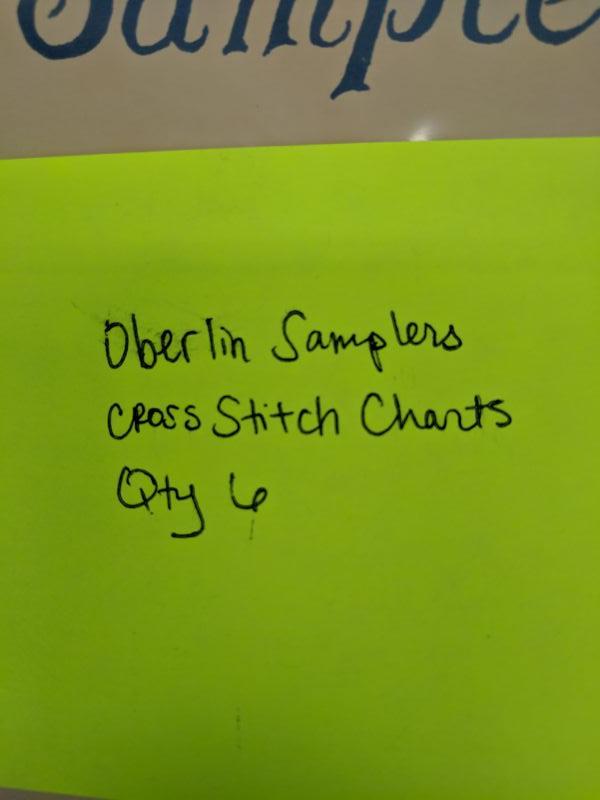 Sample
Oberlin Samplers
Cross Stitch Charts
Qty 6